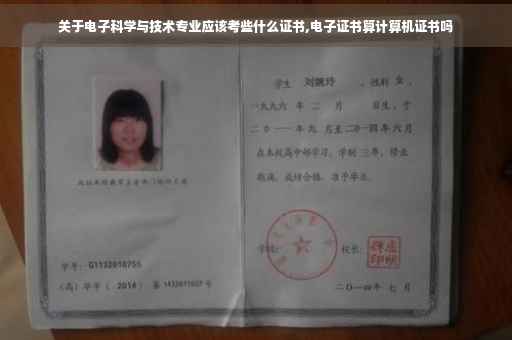 关于电子科学与技术专业应该考些什么证书,电子证书算计算机证书吗
学生 刘婉玲 ，性别 女 ，
一九九六 年 二 月 日生，于
二〇一一 年 九 月至 二〇一四 年 六 月
在本校高中部学习，学制 三 年，修业
期满，成绩合格，准予毕业。
学校：
校长：
二〇一四年 七 月
学号： G1132010755
（高）毕字（ 2014 ）第 1432011027 号